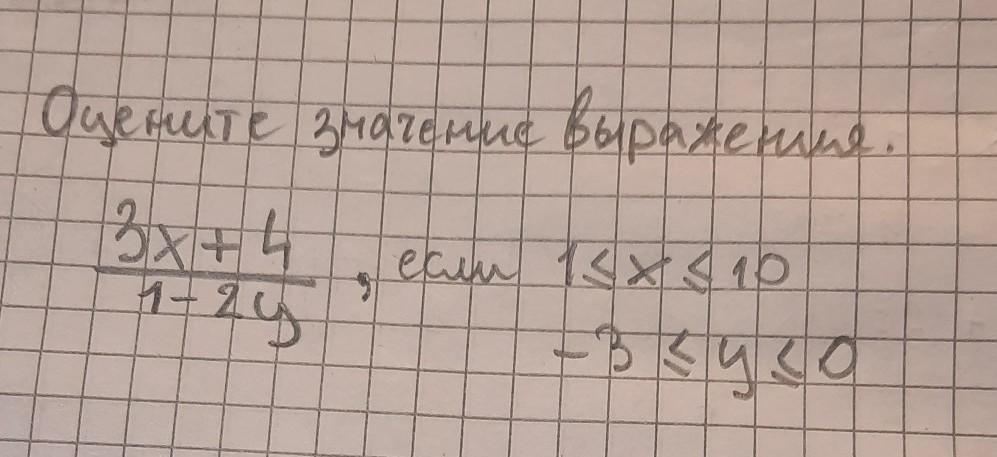 Оцените значение выражения.
\frac{3x+4}{1-2y}, если 1 ≤ x ≤ 10
-3 ≤ y ≤ 0